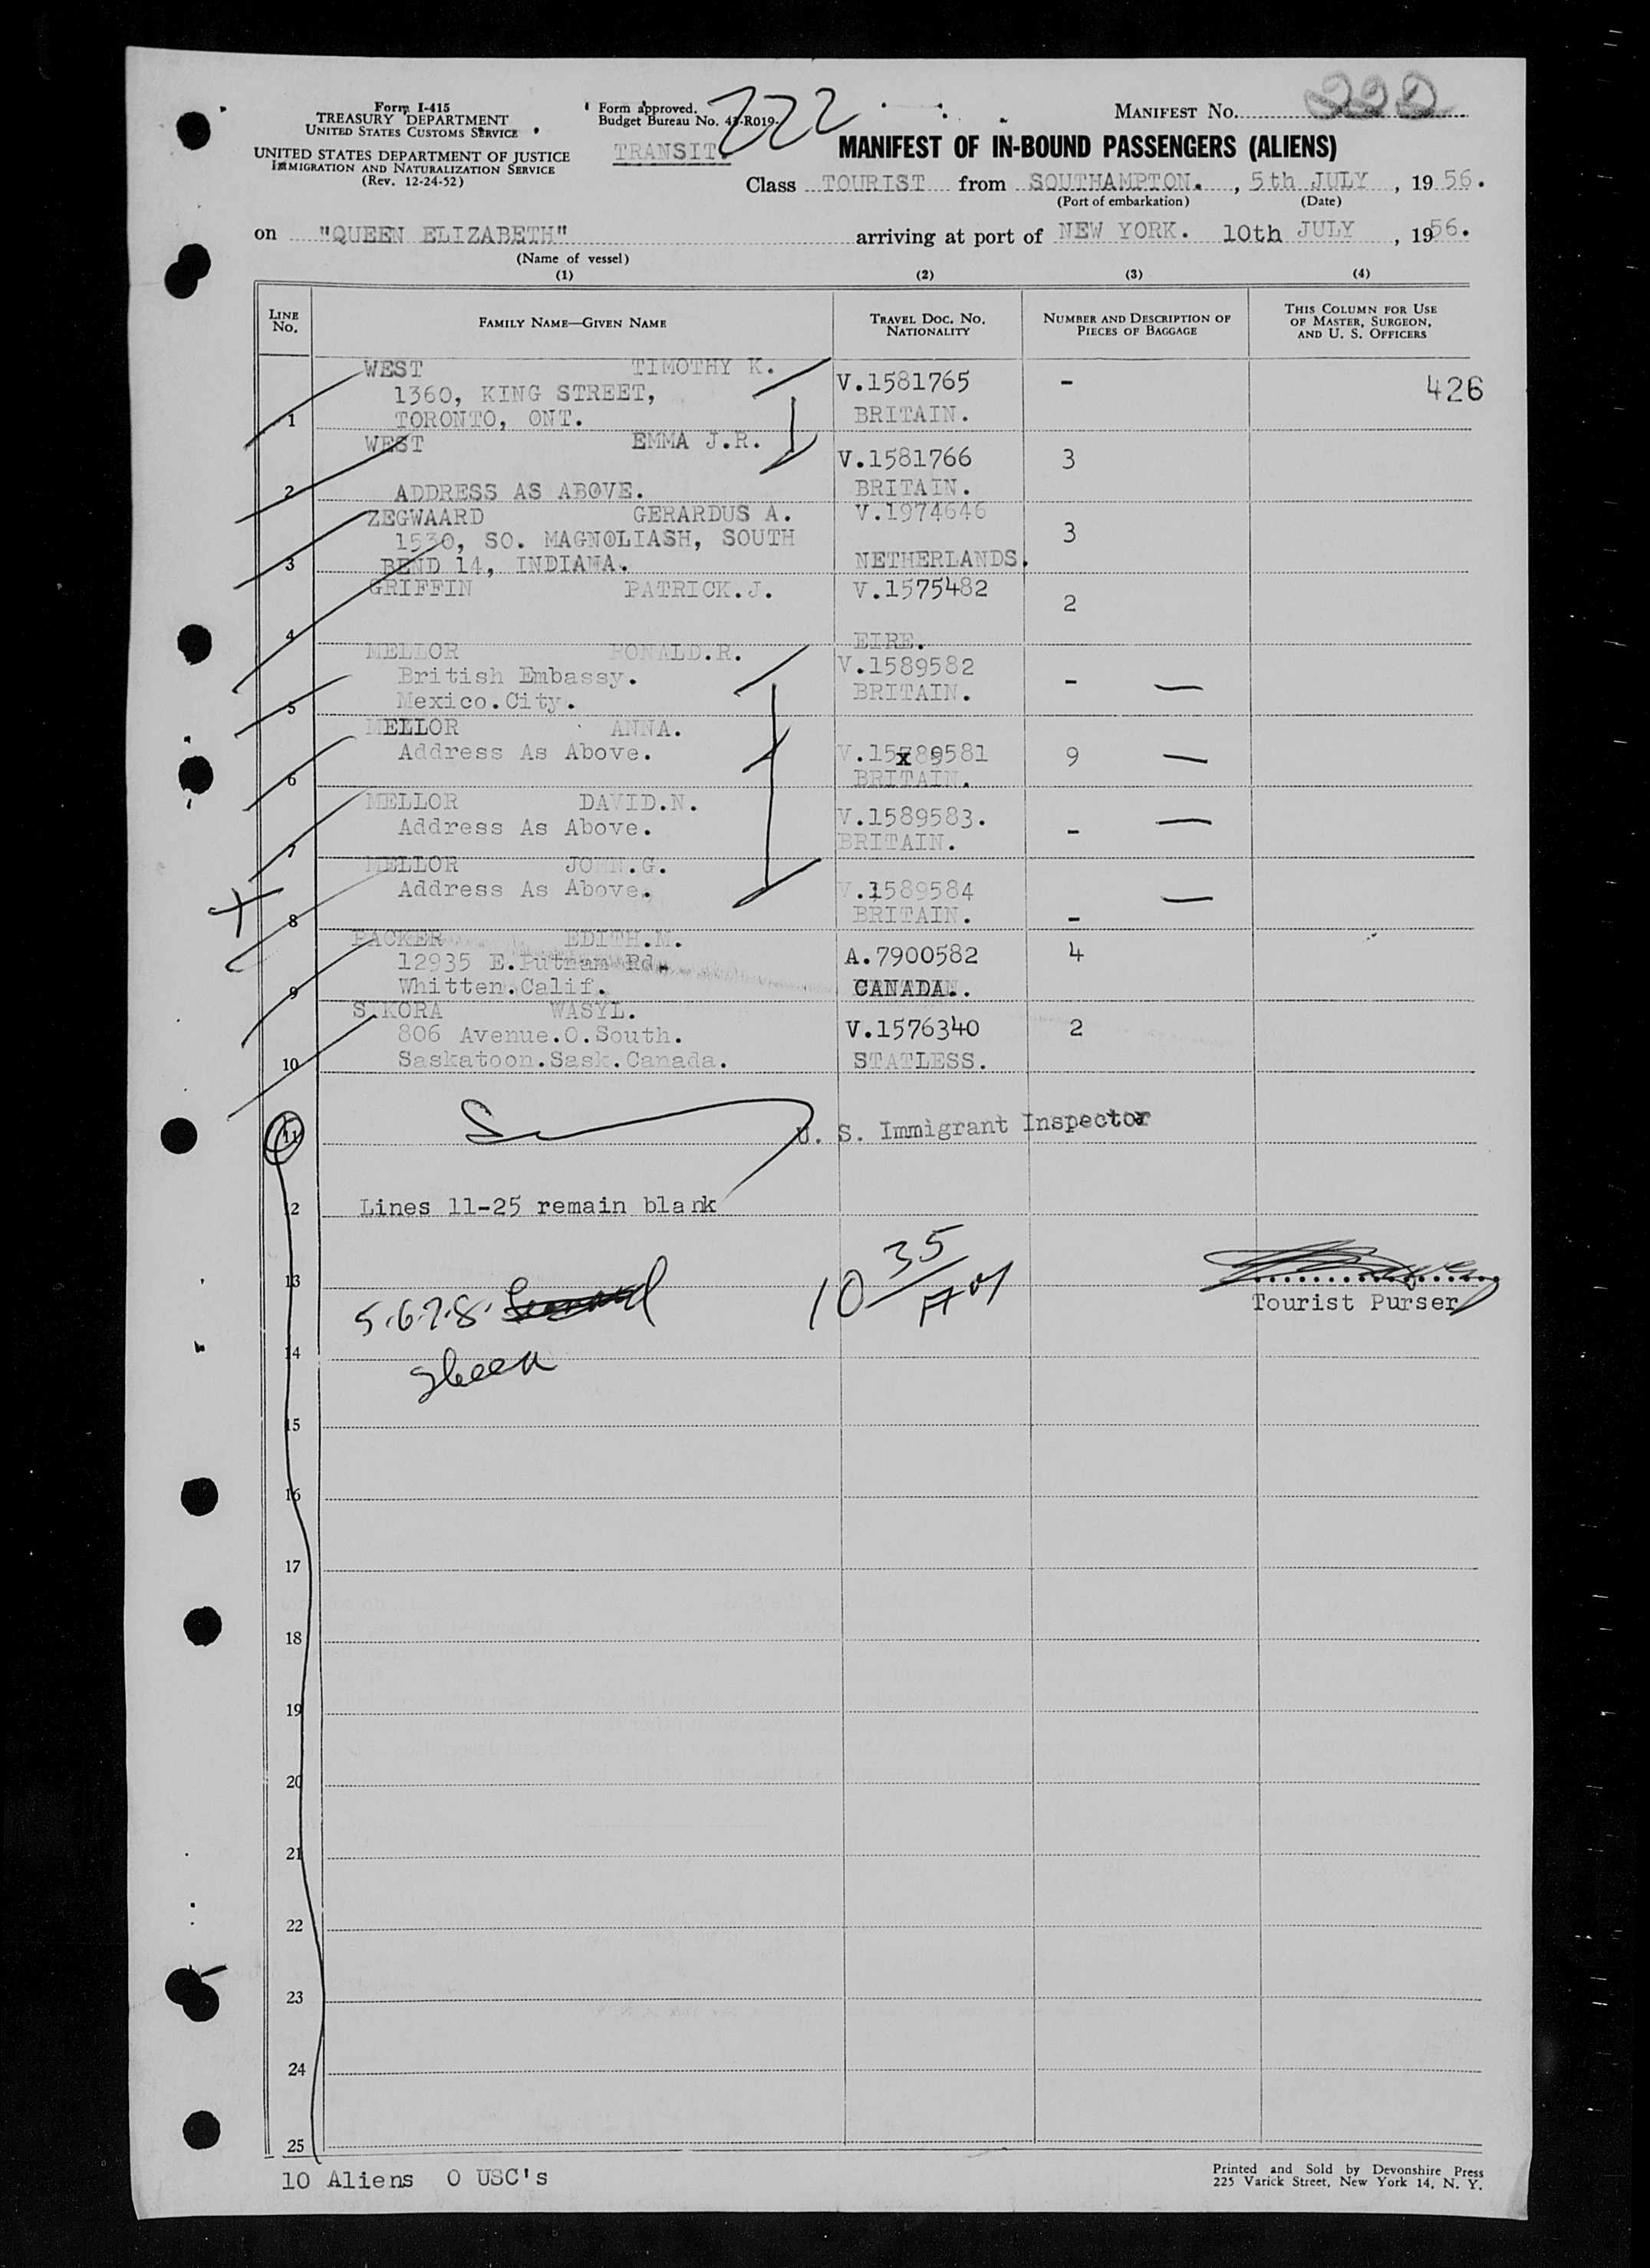 Form I-415
TREASURY DEPARTMENT
UNITED STATES CUSTOMS SERVICE
UNITED STATES DEPARTMENT OF JUSTICE
IMMIGRATION AND NATURALIZATION SERVICE
(Rev. 12-24-52)
Form approved.
Budget Bureau No. 43-R019-
222
TRANSIT.
MANIFEST No. 222
MANIFEST OF IN-BOUND PASSENGERS (ALIENS)
Class TOURIST from SOUTHAMPTON. , 5th JULY , 19 56.
(Port of embarkation) (Date)
on "QUEEN ELIZABETH" arriving at port of NEW YORK. 10th JULY , 1956.
(Name of vessel)
(1) (2) (3) (4)
LINE No. FAMILY NAME—GIVEN NAME TRAVEL DOC. No. NATIONALITY NUMBER AND DESCRIPTION OF PIECES OF BAGGAGE THIS COLUMN FOR USE OF MASTER, SURGEON, AND U. S. OFFICERS
WEST TIMOTHY K.
1360, KING STREET, V.1581765 - 426
1 TORONTO, ONT. BRITAIN.
WEST EMMA J.R.
V.1581766 3
2 ADDRESS AS ABOVE. BRITAIN.
ZEGWAARD GERARDUS A. V.1974646
1530, SO. MAGNOLIASH, SOUTH 3
3 BEND 14, INDIANA. NETHERLANDS.
GRIFFIN PATRICK.J. V.1575482
2
4 EIRE.
MELLOR RONALD.R. V.1589582
British Embassy. BRITAIN. - —
5 Mexico.City.
MELLOR ANNA.
Address As Above. V.15x89581 9 —
6 BRITAIN.
MELLOR DAVID.N.
Address As Above. V.1589583. - —
7 BRITAIN.
MELLOR JOHN.G.
Address As Above. V.1589584 —
8 BRITAIN. -
PACKER EDITH.M.
12935 E.Putnam Rd. A.7900582 4
9 Whitten.Calif. CANADA.
SIKORA WASYL.
806 Avenue.O.South. V.1576340 2
10 Saskatoon.Sask.Canada. STATLESS.
11 U. S. Immigrant Inspector
12 Lines 11-25 remain blank
13 10 35 AM
5.6.7.8.
Tourist Purser
14
15
16
17
18
19
20
21
22
23
24
25
10 Aliens 0 USC's
Printed and Sold by Devonshire Press
225 Varick Street, New York 14, N. Y.